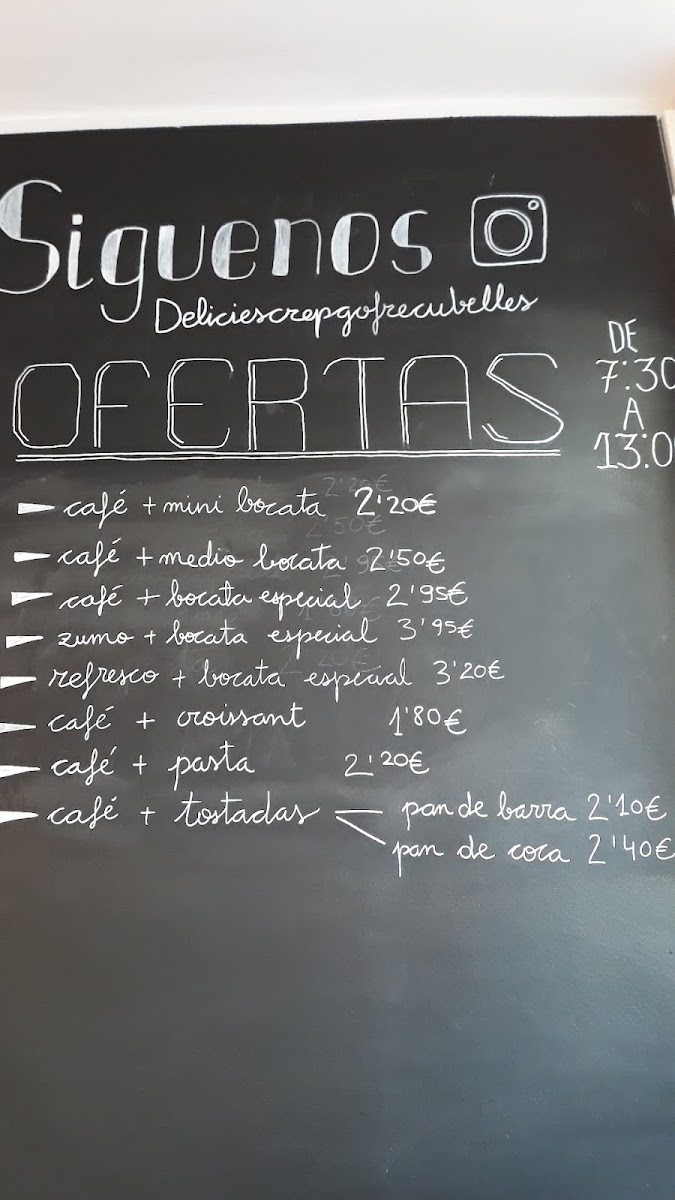 Siguenos
Deliciescrepgofrecubelles
OFERTAS
DE
7:30
A
13:0
café + mini bocata 2'20€
café + medio bocata 2'50€
café + bocata especial 2'95€
zumo + bocata especial 3'95€
refresco + bocata especial 3'20€
café + croissant 1'80€
café + pasta 2'20€
café + tostadas pan de barra 2'10€
pan de coca 2'40€